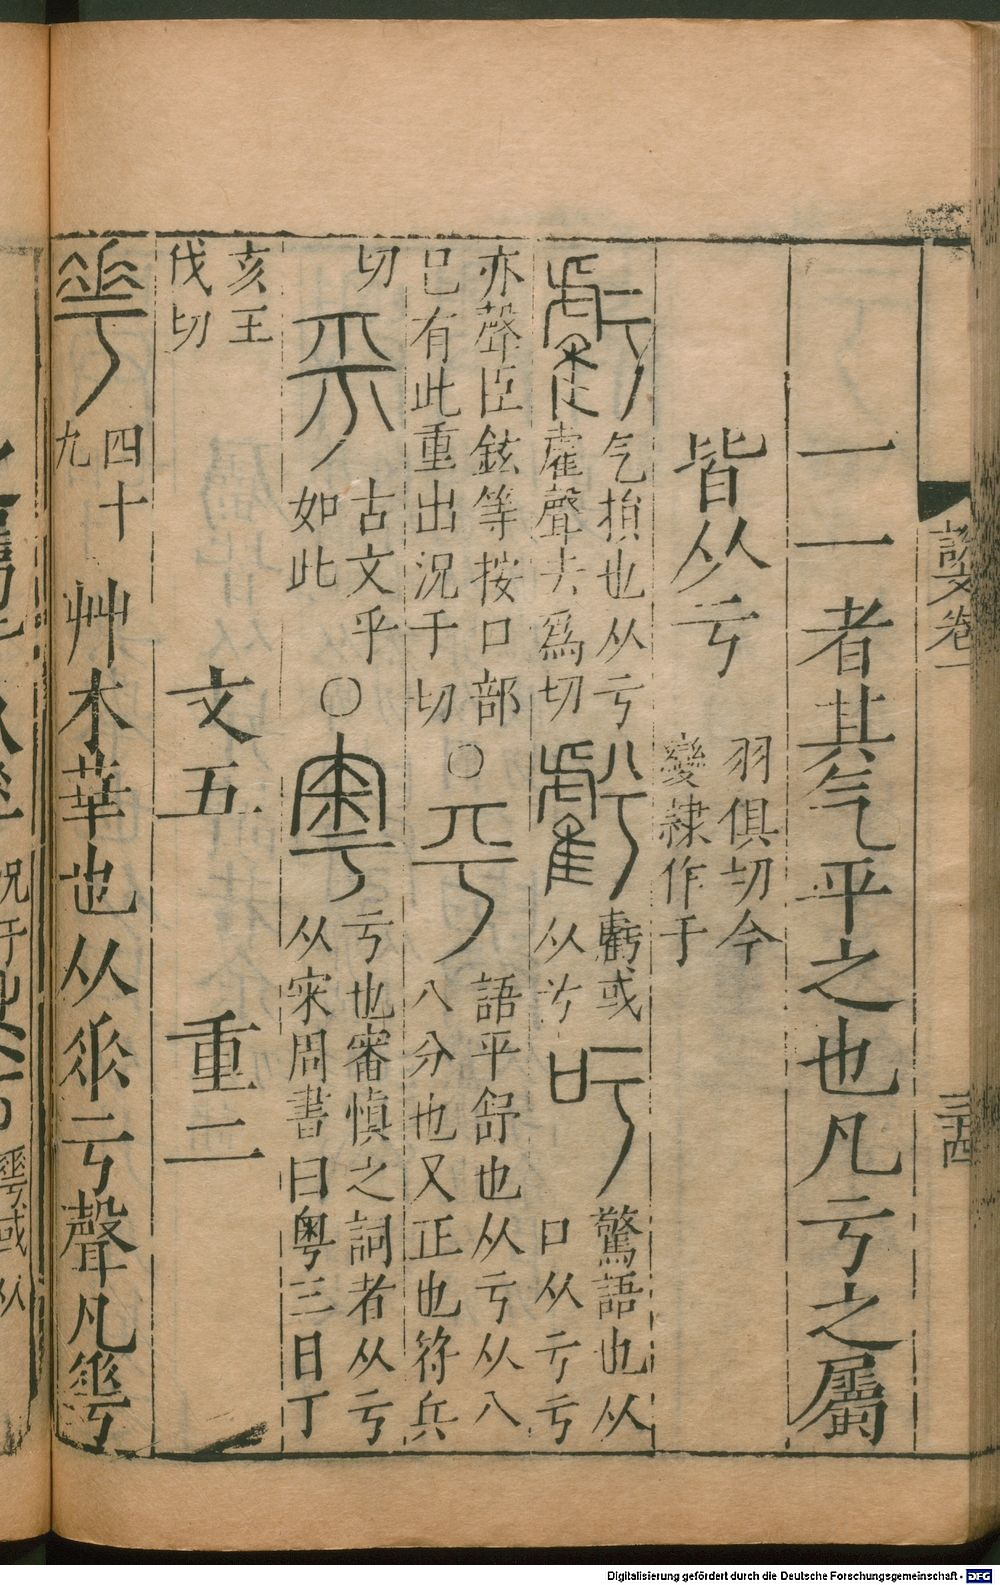 一一者其气平之也凡亏之屬
皆从亏 羽俱切今變隸作于
虧 气損也从亏雐聲去爲切 𧇾 虧或从兮 吁 驚語也从口从亏亏
亦聲臣鉉等按口部已有此重出況于切 ○ 平 語平舒也从亏从八八分也又正也符兵
切 𠀘 古文乎如此 ○ 粵 亏也審慎之詞者从亏从宷周書曰粵三日丁
亥王伐切 文五 重二
𠌶 四十九 艸木華也从𠂹亏聲凡𠌶
說文卷一
三十四
Digitalisierung gefördert durch die Deutsche Forschungsgemeinschaft - DFG